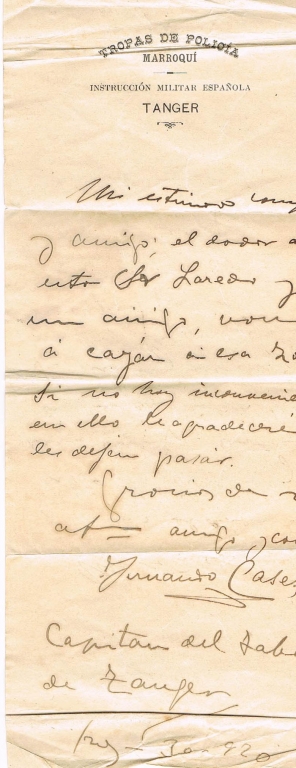 TROPAS DE POLICÍA
MARROQUÍ
INSTRUCCIÓN MILITAR ESPAÑOLA
TANGER
Mi estimado
y amigo; el dador
esta Sr Laredo y
un amigo, 
á cazar en esa
Si no hay inconvenie
en ello le agradeceré
les dejen pasar.
Gracias de
afmo amigo y
Fernando Cases
Capitan del Tabo
de Tanger
30- 920